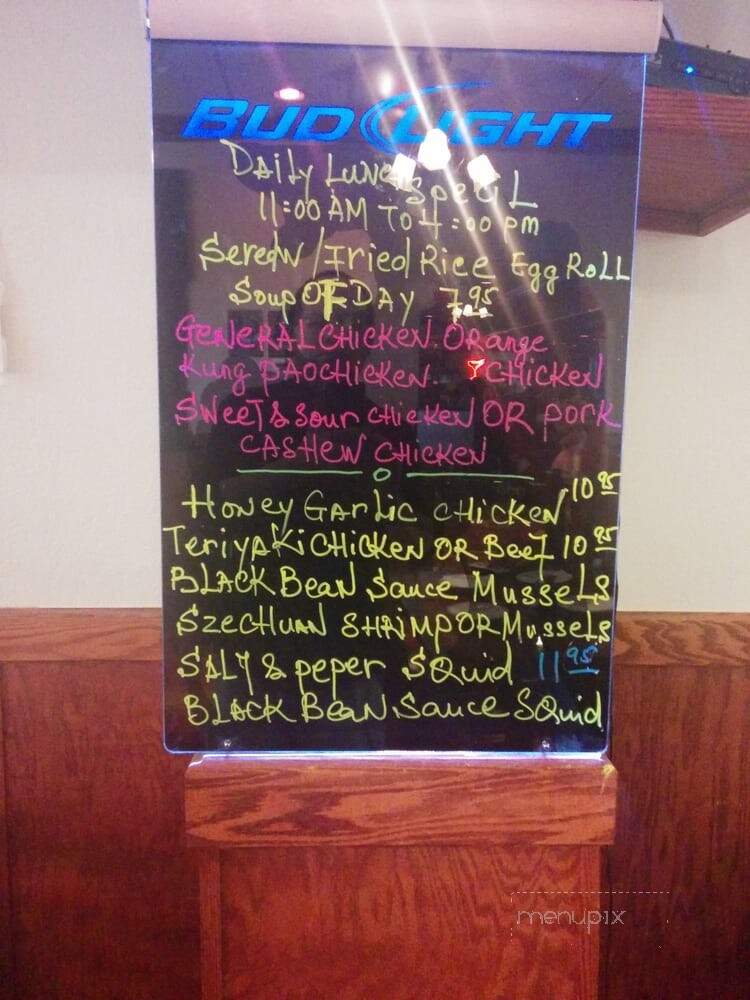 BUD LIGHT
Daily Lunch Specil
11:00 AM TO 4:00 pm
Seredw/Fried Rice Egg Roll
Soup OF DAY 7.95
General CHicken. Orange
Kung PAO CHicken. CHicken
Sweet & Sour CHicken OR Pork
CASHEW CHicken
Honey Garlic CHicken 10.95
Teriyaki CHicken OR Beef 10.95
BLACK Bean Sauce Mussels
SzecHuan SHRimp OR Mussels
SALT & peper SQuid 11.95
BLACK Bean Sauce SQuid
menupix